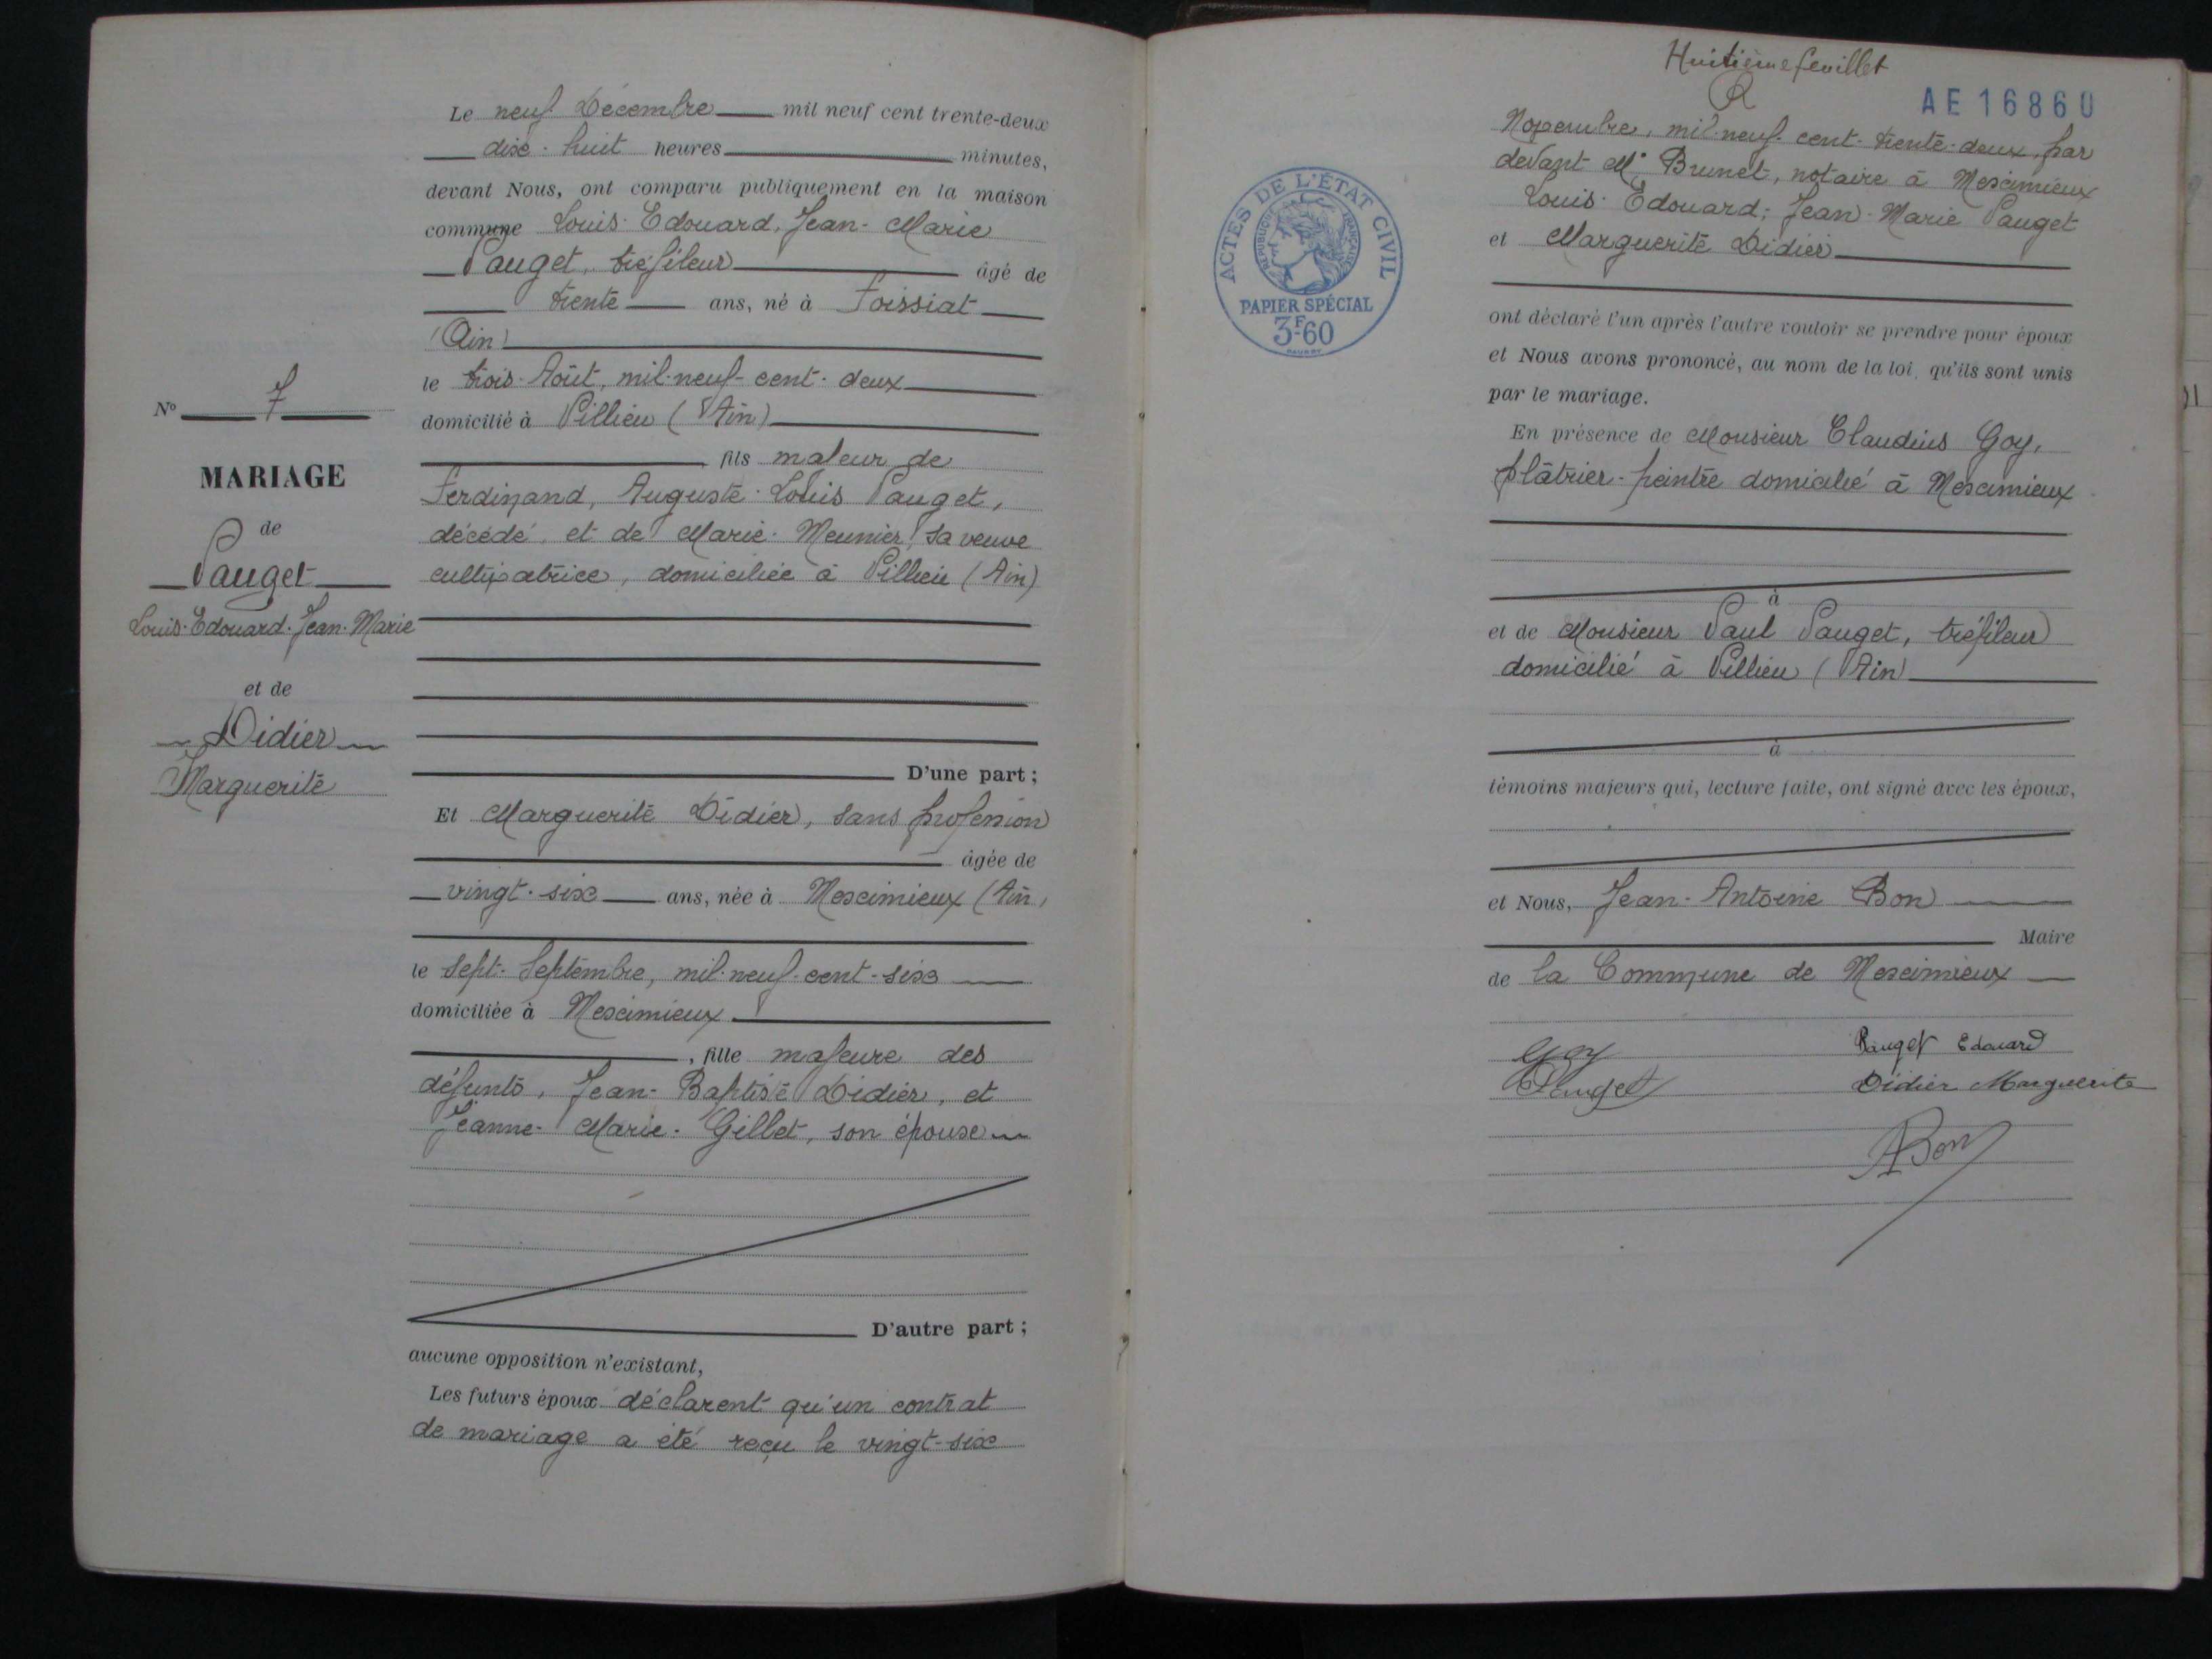 Le neuf Décembre mil neuf cent trente-deux
dix-huit heures minutes,
devant Nous, ont comparu publiquement en la maison
commune Louis-Edouard, Jean-Marie
Pauget, tréfileur âgé de
trente ans, né à Foissiat
(Ain)
le trois Août, mil-neuf-cent-deux
domicilié à Villieu (Ain)
fils majeur de
Ferdinand, Auguste-Louis Pauget,
décédé, et de Marie Meunier, sa veuve
cultivatrice, domiciliée à Villieu (Ain)
D'une part;
Et Marguerite Didier, sans profession
âgée de
vingt-six ans, née à Meximieux (Ain)
le sept Septembre, mil-neuf-cent-six
domiciliée à Meximieux
, fille majeure des
défunts, Jean-Baptiste Didier, et
Jeanne-Marie Gillet, son épouse
D'autre part;
aucune opposition n'existant,
Les futurs époux déclarent qu'un contrat
de mariage a été reçu le vingt-six
N° 7
MARIAGE
de
Pauget
Louis-Edouard-Jean-Marie
et de
Didier
Marguerite
Huitième feuillet
AE 16860
ACTES DE L'ÉTAT CIVIL
RÉPUBLIQUE FRANÇAISE
PAPIER SPÉCIAL
3F60
Novembre, mil-neuf-cent-trente-deux, par
devant Me Brunet, notaire à Meximieux
Louis-Edouard, Jean-Marie Pauget
et Marguerite Didier
ont déclaré l'un après l'autre vouloir se prendre pour époux
et Nous avons prononcé, au nom de la loi, qu'ils sont unis
par le mariage.
En présence de Monsieur Claudius Goy,
plâtrier-peintre domicilié à Meximieux
à
et de Monsieur Paul Pauget, tréfileur
domicilié à Villieu (Ain)
à
témoins majeurs qui, lecture faite, ont signé avec les époux,
et Nous, Jean-Antoine Bon
Maire
de la Commune de Meximieux
Goy Pauget Edouard
Pauget Didier Marguerite
ABon